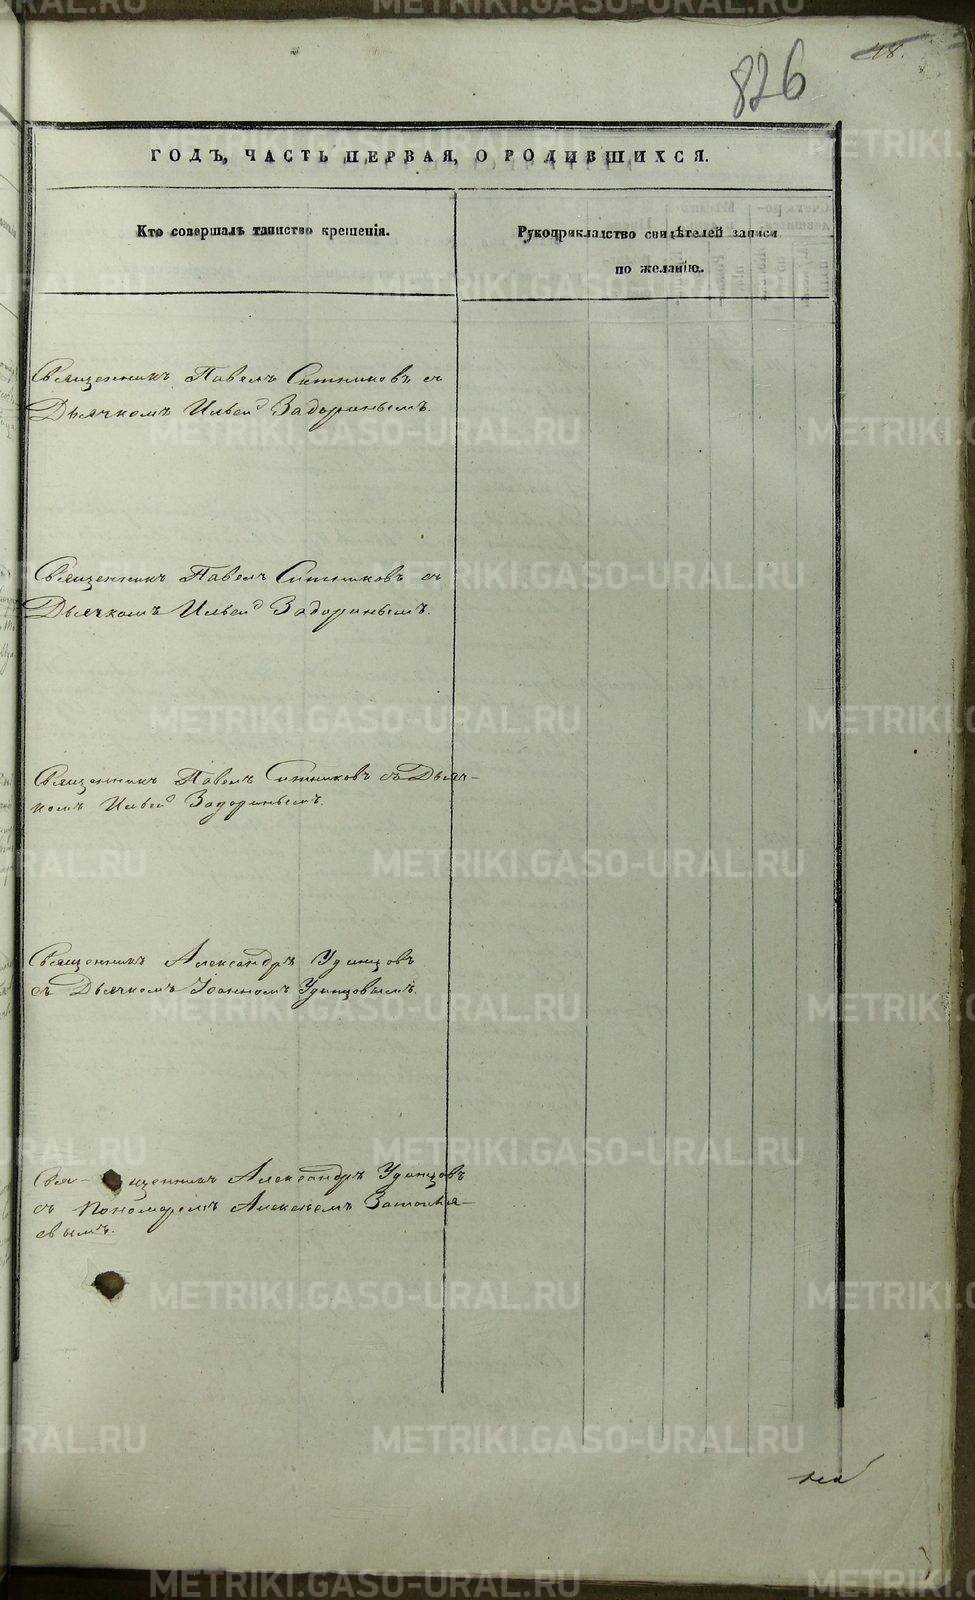 48.
826
ГОДЪ, ЧАСТЬ ПЕРВАЯ, О РОДИВШИХСЯ.
Кто совершалъ таинство крещенія.
Рукоприкладство свидѣтелей записи
по желанію.
Священникъ Павелъ Ситниковъ съ
Дьячкомъ Ильей Задоринымъ.
Священникъ Павелъ Ситниковъ съ
Дьячкомъ Ильей Задоринымъ.
Священникъ Павелъ Ситниковъ съ Дьяч-
комъ Ильей Задоринымъ.
Священникъ Александръ Удинцовъ
съ Дьячкомъ Іоанномъ Удинцовымъ.
Свя- щенникъ Александръ Удинцовъ
съ Пономаремъ Алексѣемъ
METRIKI.GASO-URAL.RU